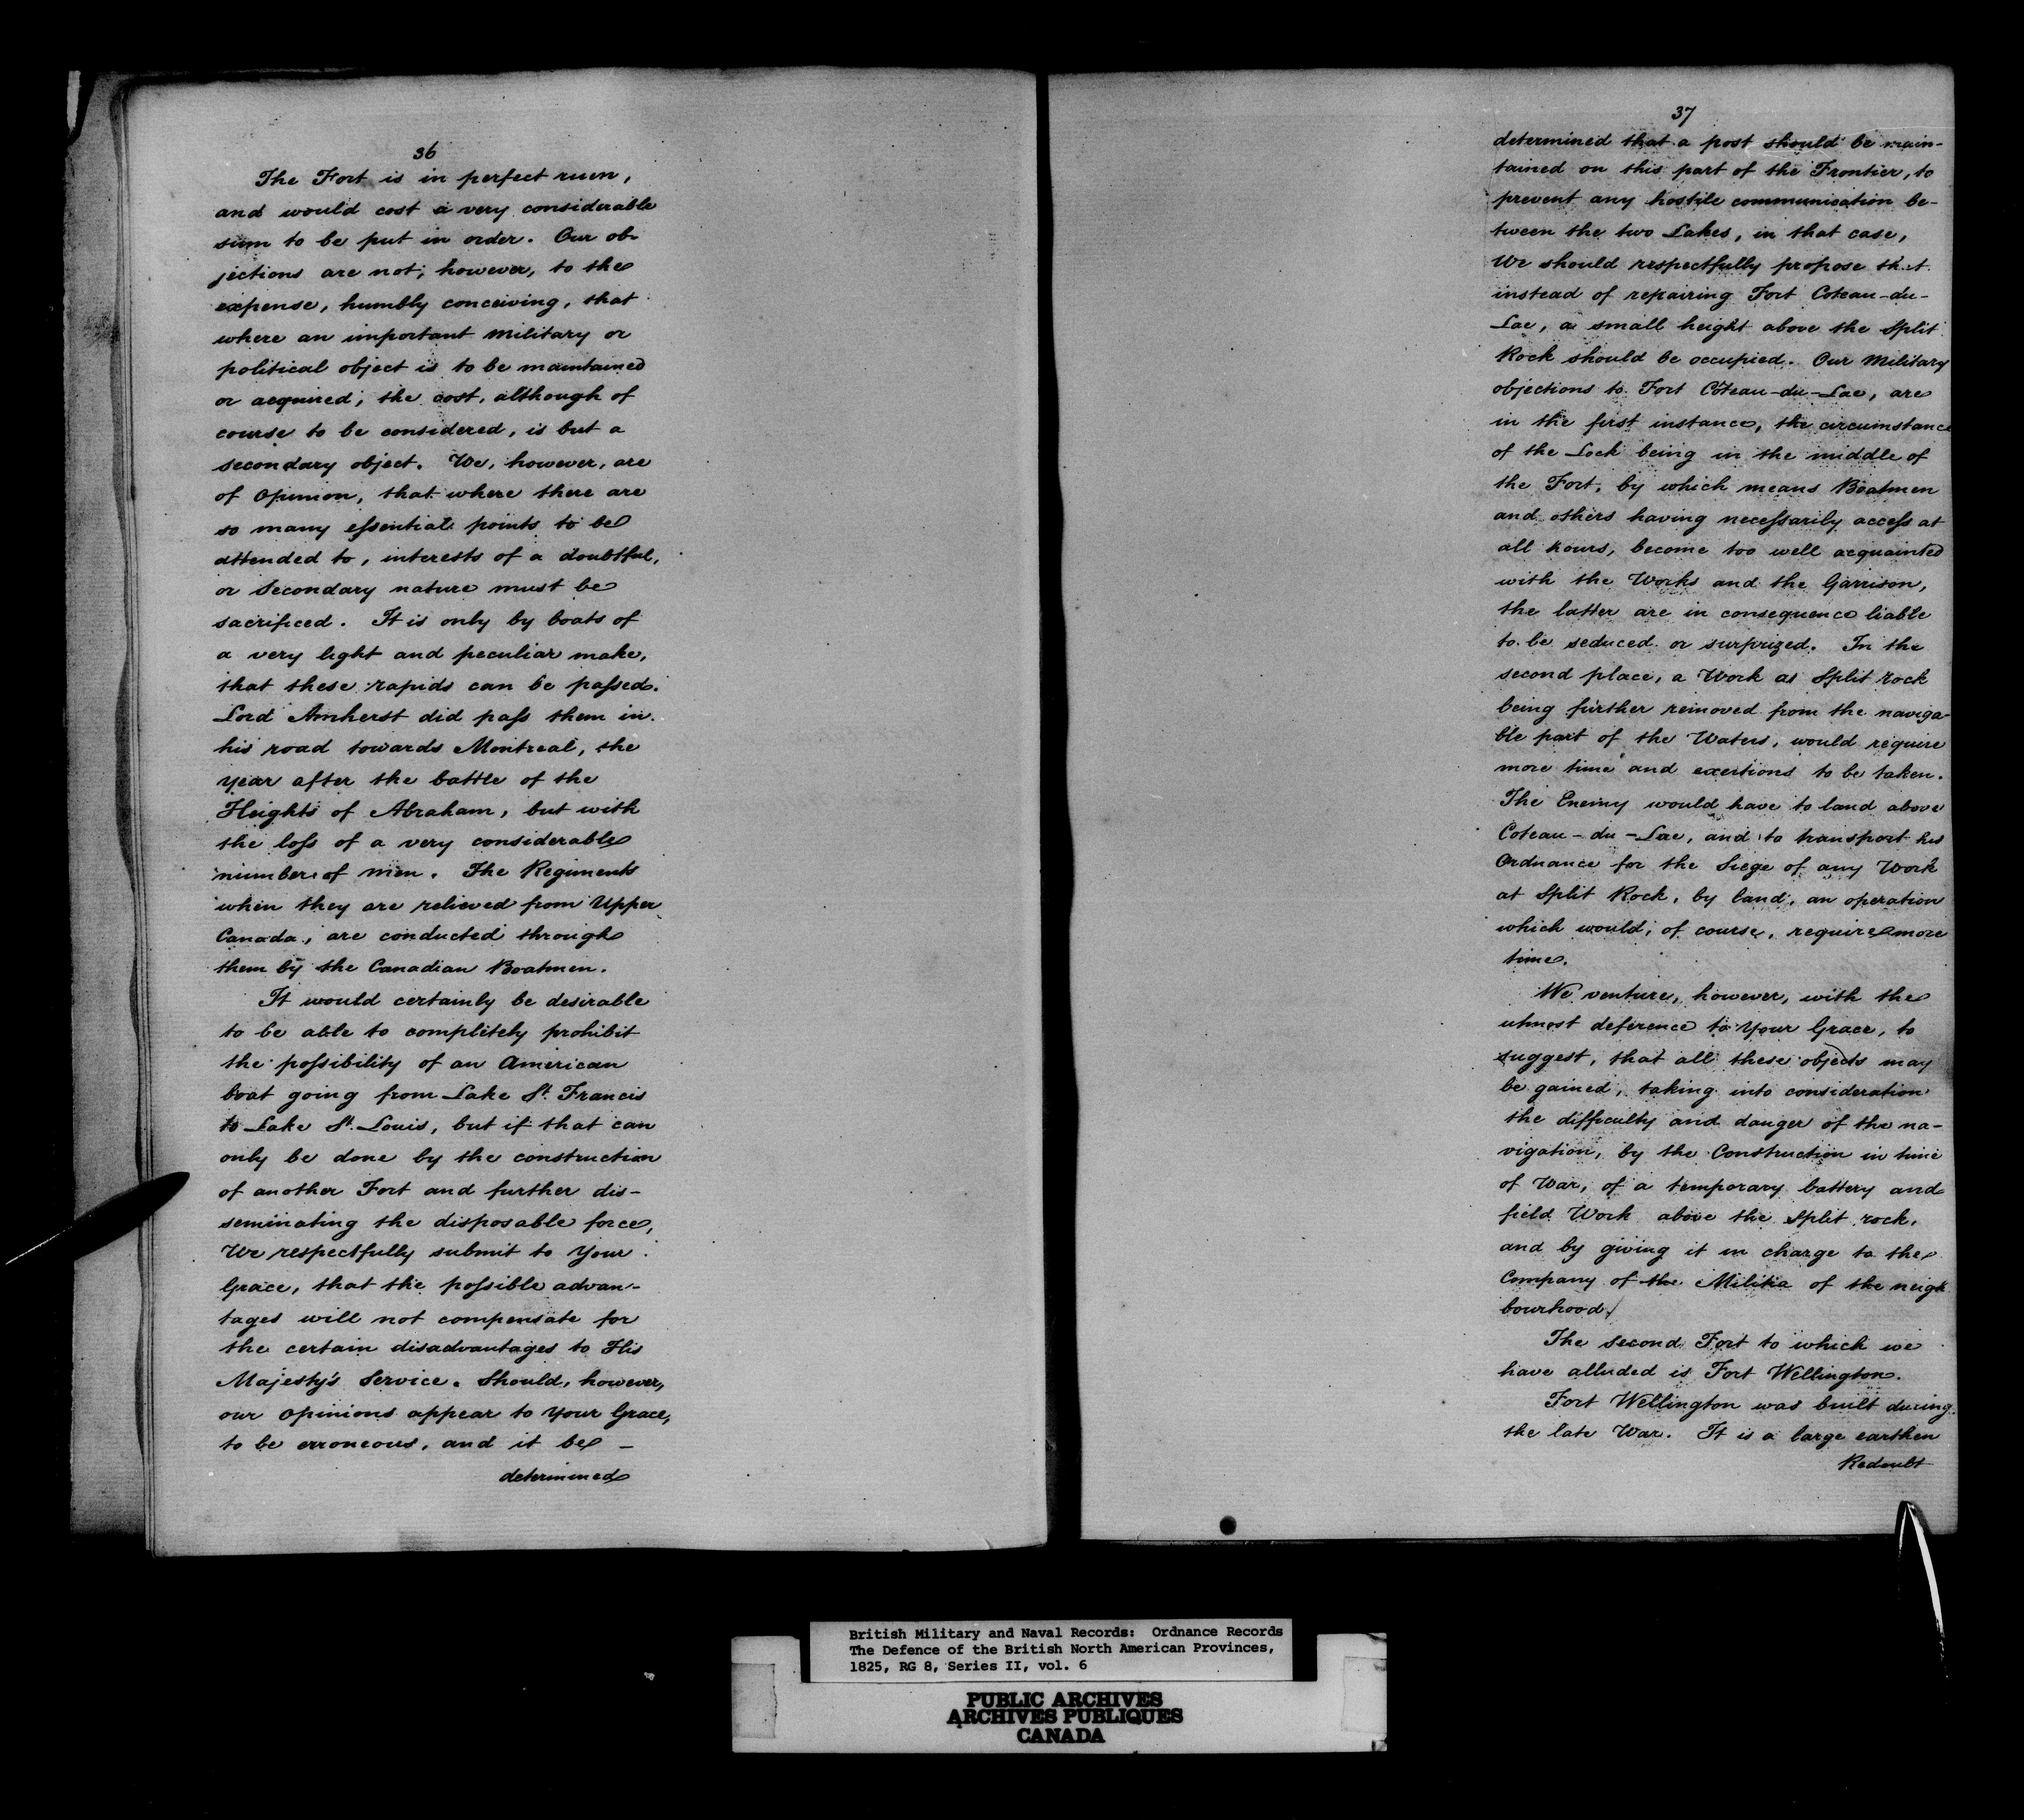 36
The Fort is in perfect ruin,
and would cost a very considerable
sum to be put in order. Our ob-
jections are not, however, to the
expense, humbly conceiving, that
where an important military or
political object is to be maintained
or acquired, the cost, although of
course to be considered, is but a
secondary object. We, however, are
of Opinion, that where there are
so many eſsential points to be
attended to, interests of a doubtful,
or Secondary nature must be
sacrificed. It is only by boats of
a very light and peculiar make,
that these rapids can be paſsed.
Lord Amherst did paſs them in
his road towards Montreal, the
year after the battle of the
Heights of Abraham, but with
the loſs of a very considerable
number of men. The Regiments
when they are relieved from Upper
Canada, are conducted through
them by the Canadian Boatmen.
It would certainly be desirable
to be able to completely prohibit
the poſsibility of an American
boat going from Lake St. Francis
to Lake St. Louis, but if that can
only be done by the construction
of another Fort and further dis-
seminating the disposable force,
We respectfully submit to Your
Grace, that the poſsible advan-
tages will not compensate for
the certain disadvantages to His
Majesty's Service. Should, however,
our Opinions appear to Your Grace,
to be erroneous, and it be -
determined
37
determined that a post should be main-
tained on this part of the Frontier, to
prevent any hostile communication be-
tween the two Lakes, in that case,
We should respectfully propose that
instead of repairing Fort Coteau-du-
Lac, a small height above the Split
Rock should be occupied. Our Military
objections to Fort Côteau-du-Lac, are
in the first instance, the circumstance
of the Lock being in the middle of
the Fort, by which means Boatmen
and others having neceſsarily acceſs at
all hours, become too well acquainted
with the Works and the Garrison,
the latter are in consequence liable
to be seduced or surprized. In the
second place, a Work at Split rock
being further removed from the naviga-
ble part of the Waters, would require
more time and exertions to be taken.
The Enemy would have to land above
Coteau-du-Lac, and to transport his
Ordnance for the Siege of any Work
at Split Rock, by land, an operation
which would, of course, require more
time.
We venture, however, with the
utmost deference to Your Grace, to
suggest, that all these objects may
be gained, taking into consideration
the difficulty and danger of the na-
vigation, by the Construction in time
of War, of a temporary battery and
field Work above the Split rock,
and by giving it in charge to the
Company of the Militia of the neigh
bourhood.
The second Fort to which we
have alluded is Fort Wellington.
Fort Wellington was built during
the late War. It is a large earthen
Redoubt
British Military and Naval Records: Ordnance Records
The Defence of the British North American Provinces,
1825, RG 8, Series II, vol. 6
PUBLIC ARCHIVES
ARCHIVES PUBLIQUES
CANADA